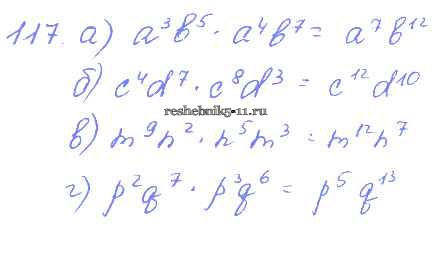 117. а) a³b⁵ · a⁴b⁷ = a⁷b¹²
б) c⁴d⁷ · c⁸d³ = c¹²d¹⁰
reshebnik5-11.ru
в) m⁹n² · n⁵m³ = m¹²n⁷
г) p²q⁷ · p³q⁶ = p⁵q¹³